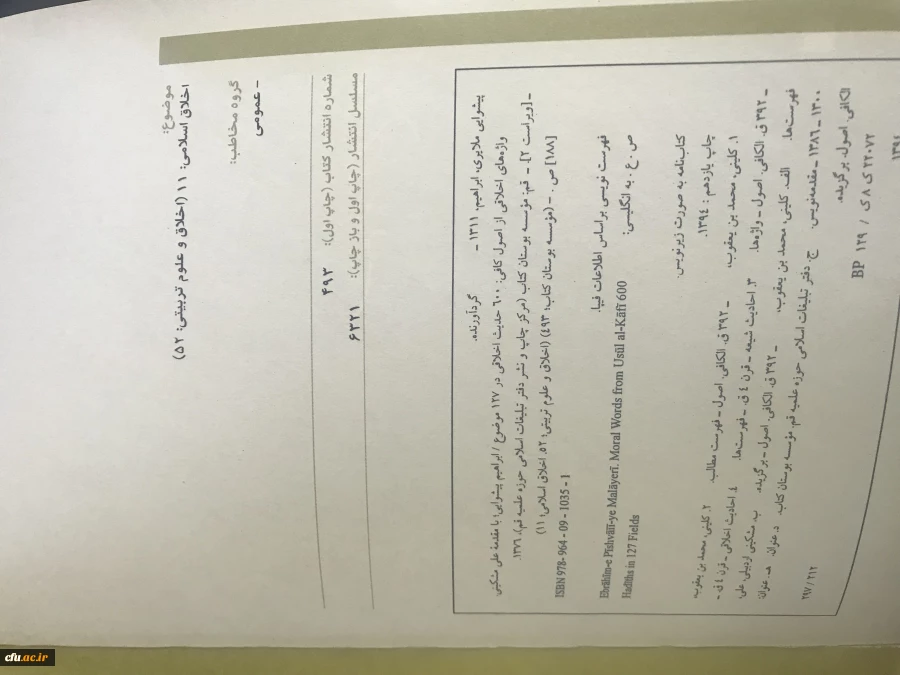 موضوع:
اخلاق اسلامی: ۱۱ (اخلاق و علوم تربیتی: ۵۲)
گروه مخاطب:
- عمومی
شماره انتشار کتاب (چاپ اول): ۴۹۳
مسلسل انتشار (چاپ اول و باز چاپ): ۶۳۲۱
پیشوایی ملایری، ابراهیم، ۱۳۱۱ - گردآورنده.
واژه‌های اخلاقی از اصول کافی: ۶۰۰ حدیث اخلاقی در ۱۲۷ موضوع / ابراهیم پیشوایی؛ با مقدمهٔ علی مشکینی.
- [ویراست ۲]. - قم: مؤسسه بوستان کتاب (مرکز چاپ و نشر دفتر تبلیغات اسلامی حوزه علمیه قم)، ۱۳۷۶.
[۱۸۸] ص. - (مؤسسه بوستان کتاب؛ ۴۹۳) (اخلاق و علوم تربیتی؛ ۵۲. اخلاق اسلامی؛ ۱۱)
ISBN 978- 964 - 09 - 1035 - 1
فهرست نویسی بر اساس اطلاعات فیپا.
ص. ع. به انگلیسی:
Ebrāhīm-e Pīshvāīī-ye Malāyerī. Moral Words from Usūl al-Kāfī 600
Hadīths in 127 Fields
کتاب‌نامه به صورت زیرنویس.
چاپ یازدهم: ۱۳۹۴.
۱. کلینی، محمد بن یعقوب، - ۳۹۲ ق. الکافی. اصول - فهرست مطالب. ۲. کلینی، محمد بن یعقوب،
- ۳۹۲ ق. الکافی. اصول - واژه‌ها. ۳. احادیث شیعه - قرن ٤ ق. - فهرست‌ها. ٤. احادیث اخلاقی - قرن ٤ ق -
فهرست‌ها. الف. کلینی، محمد بن یعقوب، - ۳۹۲ ق. الکافی. اصول - برگزیده. ب. مشکینی اردبیلی، علی،
۱۳۰۰ - ۱۳۸۶ - مقدمه‌نویس. ج. دفتر تبلیغات اسلامی حوزه علمیه قم. مؤسسه بوستان کتاب. د. عنوان. هـ. عنوان:
الکافی. اصول. برگزیده.
۲۹۷/۲۱۲
BP ۱۲۹ / ک ۸ ک ۲۲۰۷۲
۱۳۹٤
cfu.ac.ir